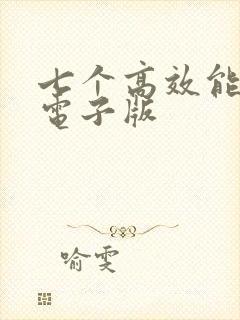 七个高效能
電子版
喻雯